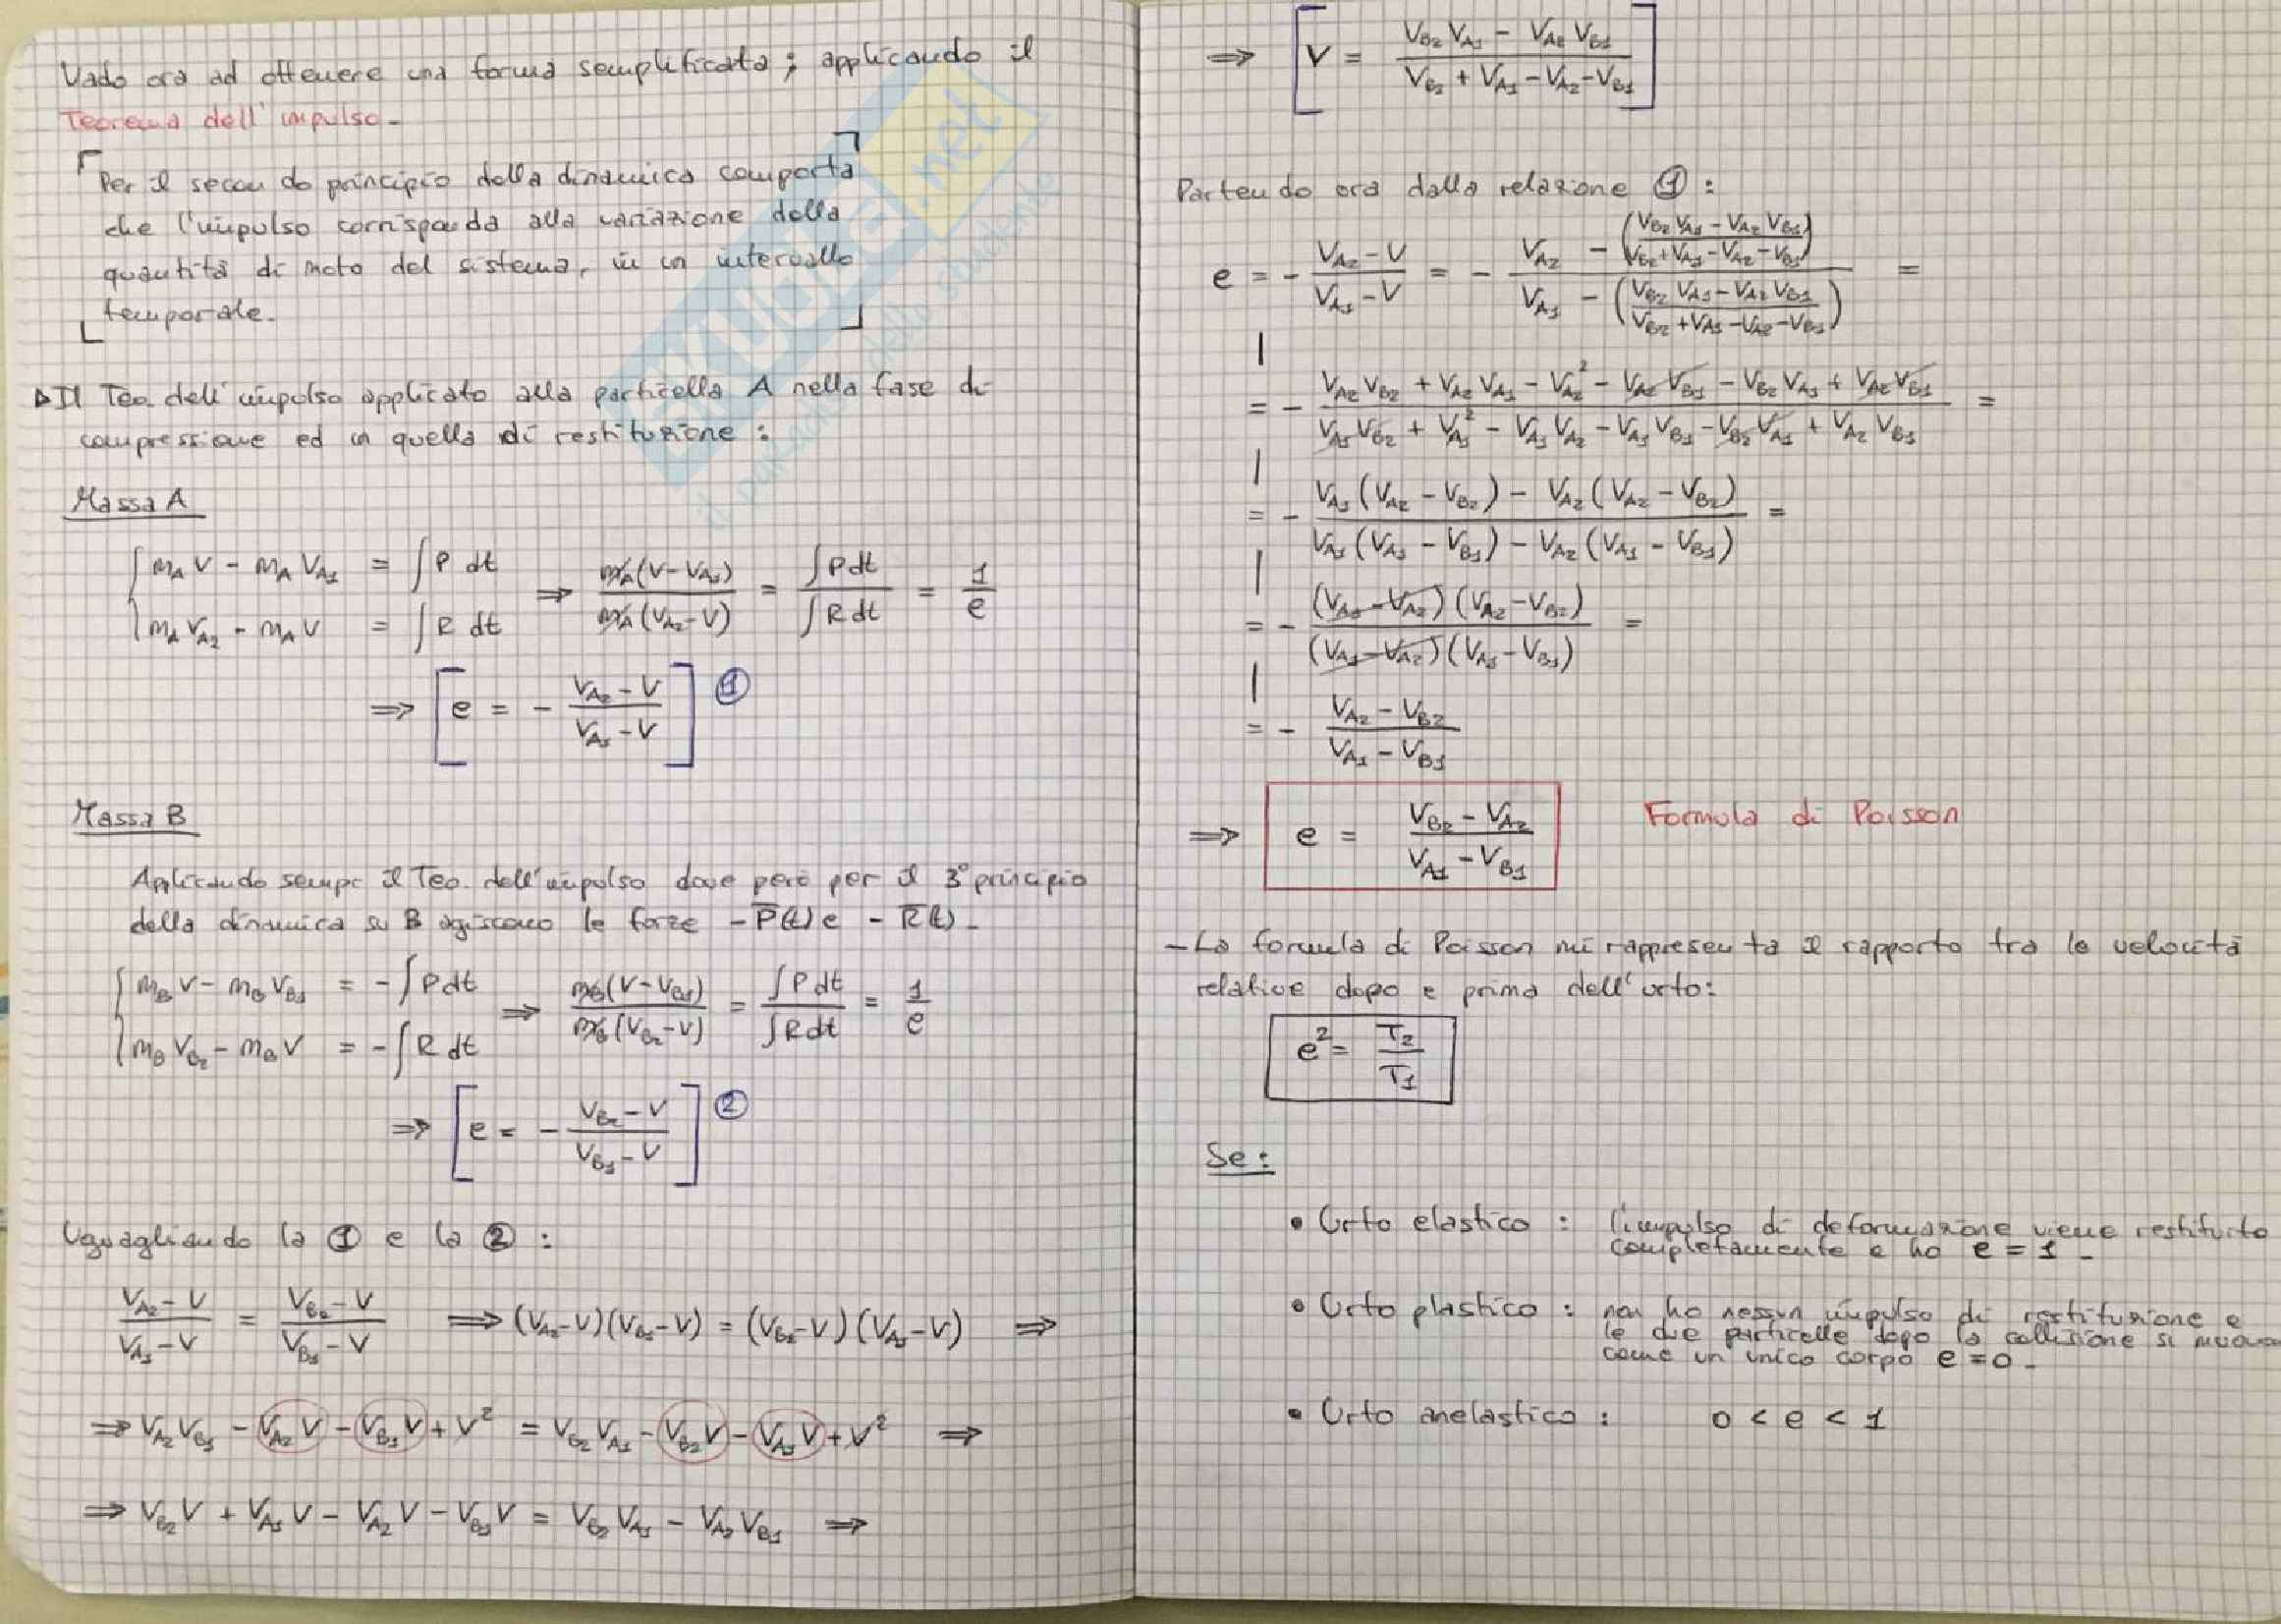 Vado ora ad ottenere una forma semplificata; applicando il
Teorema dell'impulso.
Per il secondo principio della dinamica comporta
che l'impulso corrisponda alla variazione della
quantità di moto del sistema, in un intervallo
temporale.
▷Il Teo. dell'impulso applicato alla particella A nella fase di
compressione ed in quella di restituzione:
Massa A
{ m_A V - m_A V_A1 = ∫P dt
{ m_A V_A2 - m_A V = ∫R dt ⇒ m_A(V-V_A1) / m_A(V_A2-V) = ∫Pdt / ∫Rdt = 1/e
⇒ [e = - (V_A2 - V)/(V_A1 - V)] ①
Massa B
Applicando sempre il Teo. dell'impulso dove però per il 3° principio
della dinamica su B agiscono le forze -P̄(t) e -R̄(t).
{ m_B V - m_B V_B1 = -∫Pdt
{ m_B V_B2 - m_B V = -∫R dt ⇒ m_B(V-V_B1) / m_B(V_B2-V) = ∫Pdt / ∫Rdt = 1/e
⇒ [e = - (V_B2 - V)/(V_B1 - V)] ②
Uguagliando la ① e la ② :
(V_A2 - V)/(V_A1 - V) = (V_B2 - V)/(V_B1 - V) ⇒ (V_A2-V)(V_B1-V) = (V_B2-V)(V_A1-V) ⇒
⇒ V_A2 V_B1 - V_A2 V - V_B1 V + V² = V_B2 V_A1 - V_B2 V - V_A1 V + V² ⇒
⇒ V_B2 V + V_A1 V - V_A2 V - V_B1 V = V_B2 V_A1 - V_A2 V_B1 ⇒
⇒ [V = (V_B2 V_A1 - V_A2 V_B1)/(V_B2 + V_A1 - V_A2 - V_B1)]
Partendo ora dalla relazione ① :
e = - (V_A2 - V)/(V_A1 - V) = - (V_A2 - ((V_B2 V_A1 - V_A2 V_B1)/(V_B2 + V_A1 - V_A2 - V_B1)))/(V_A1 - ((V_B2 V_A1 - V_A2 V_B1)/(V_B2 + V_A1 - V_A2 - V_B1))) =
= - (V_A2 V_B2 + V_A2 V_A1 - V_A2² - V_A2 V_B1 - V_B2 V_A1 + V_A2 V_B1)/(V_A1 V_B2 + V_A1² - V_A1 V_A2 - V_A1 V_B1 - V_B2 V_A1 + V_A2 V_B1) =
= - (V_A1(V_A2 - V_B2) - V_A2(V_A2 - V_B2))/(V_A1(V_A1 - V_B1) - V_A2(V_A1 - V_B1)) =
= - ((V_A1 - V_A2)(V_A2 - V_B2))/((V_A1 - V_A2)(V_A1 - V_B1)) =
= - (V_A2 - V_B2)/(V_A1 - V_B1)
⇒ e = (V_B2 - V_A2)/(V_A1 - V_B1) Formula di Poisson
- La formula di Poisson mi rappresenta il rapporto tra le velocità
relative dopo e prima dell'urto:
e² = T_2/T_1
Se :
• Urto elastico : l'impulso di deformazione viene restituito
completamente e ho e = 1 -
• Urto plastico : non ho nessun impulso di restituzione e
le due particelle dopo la collisione si
come un unico corpo e = 0 -
• Urto anelastico : 0 < e < 1
skuola.net
il portale dello studente